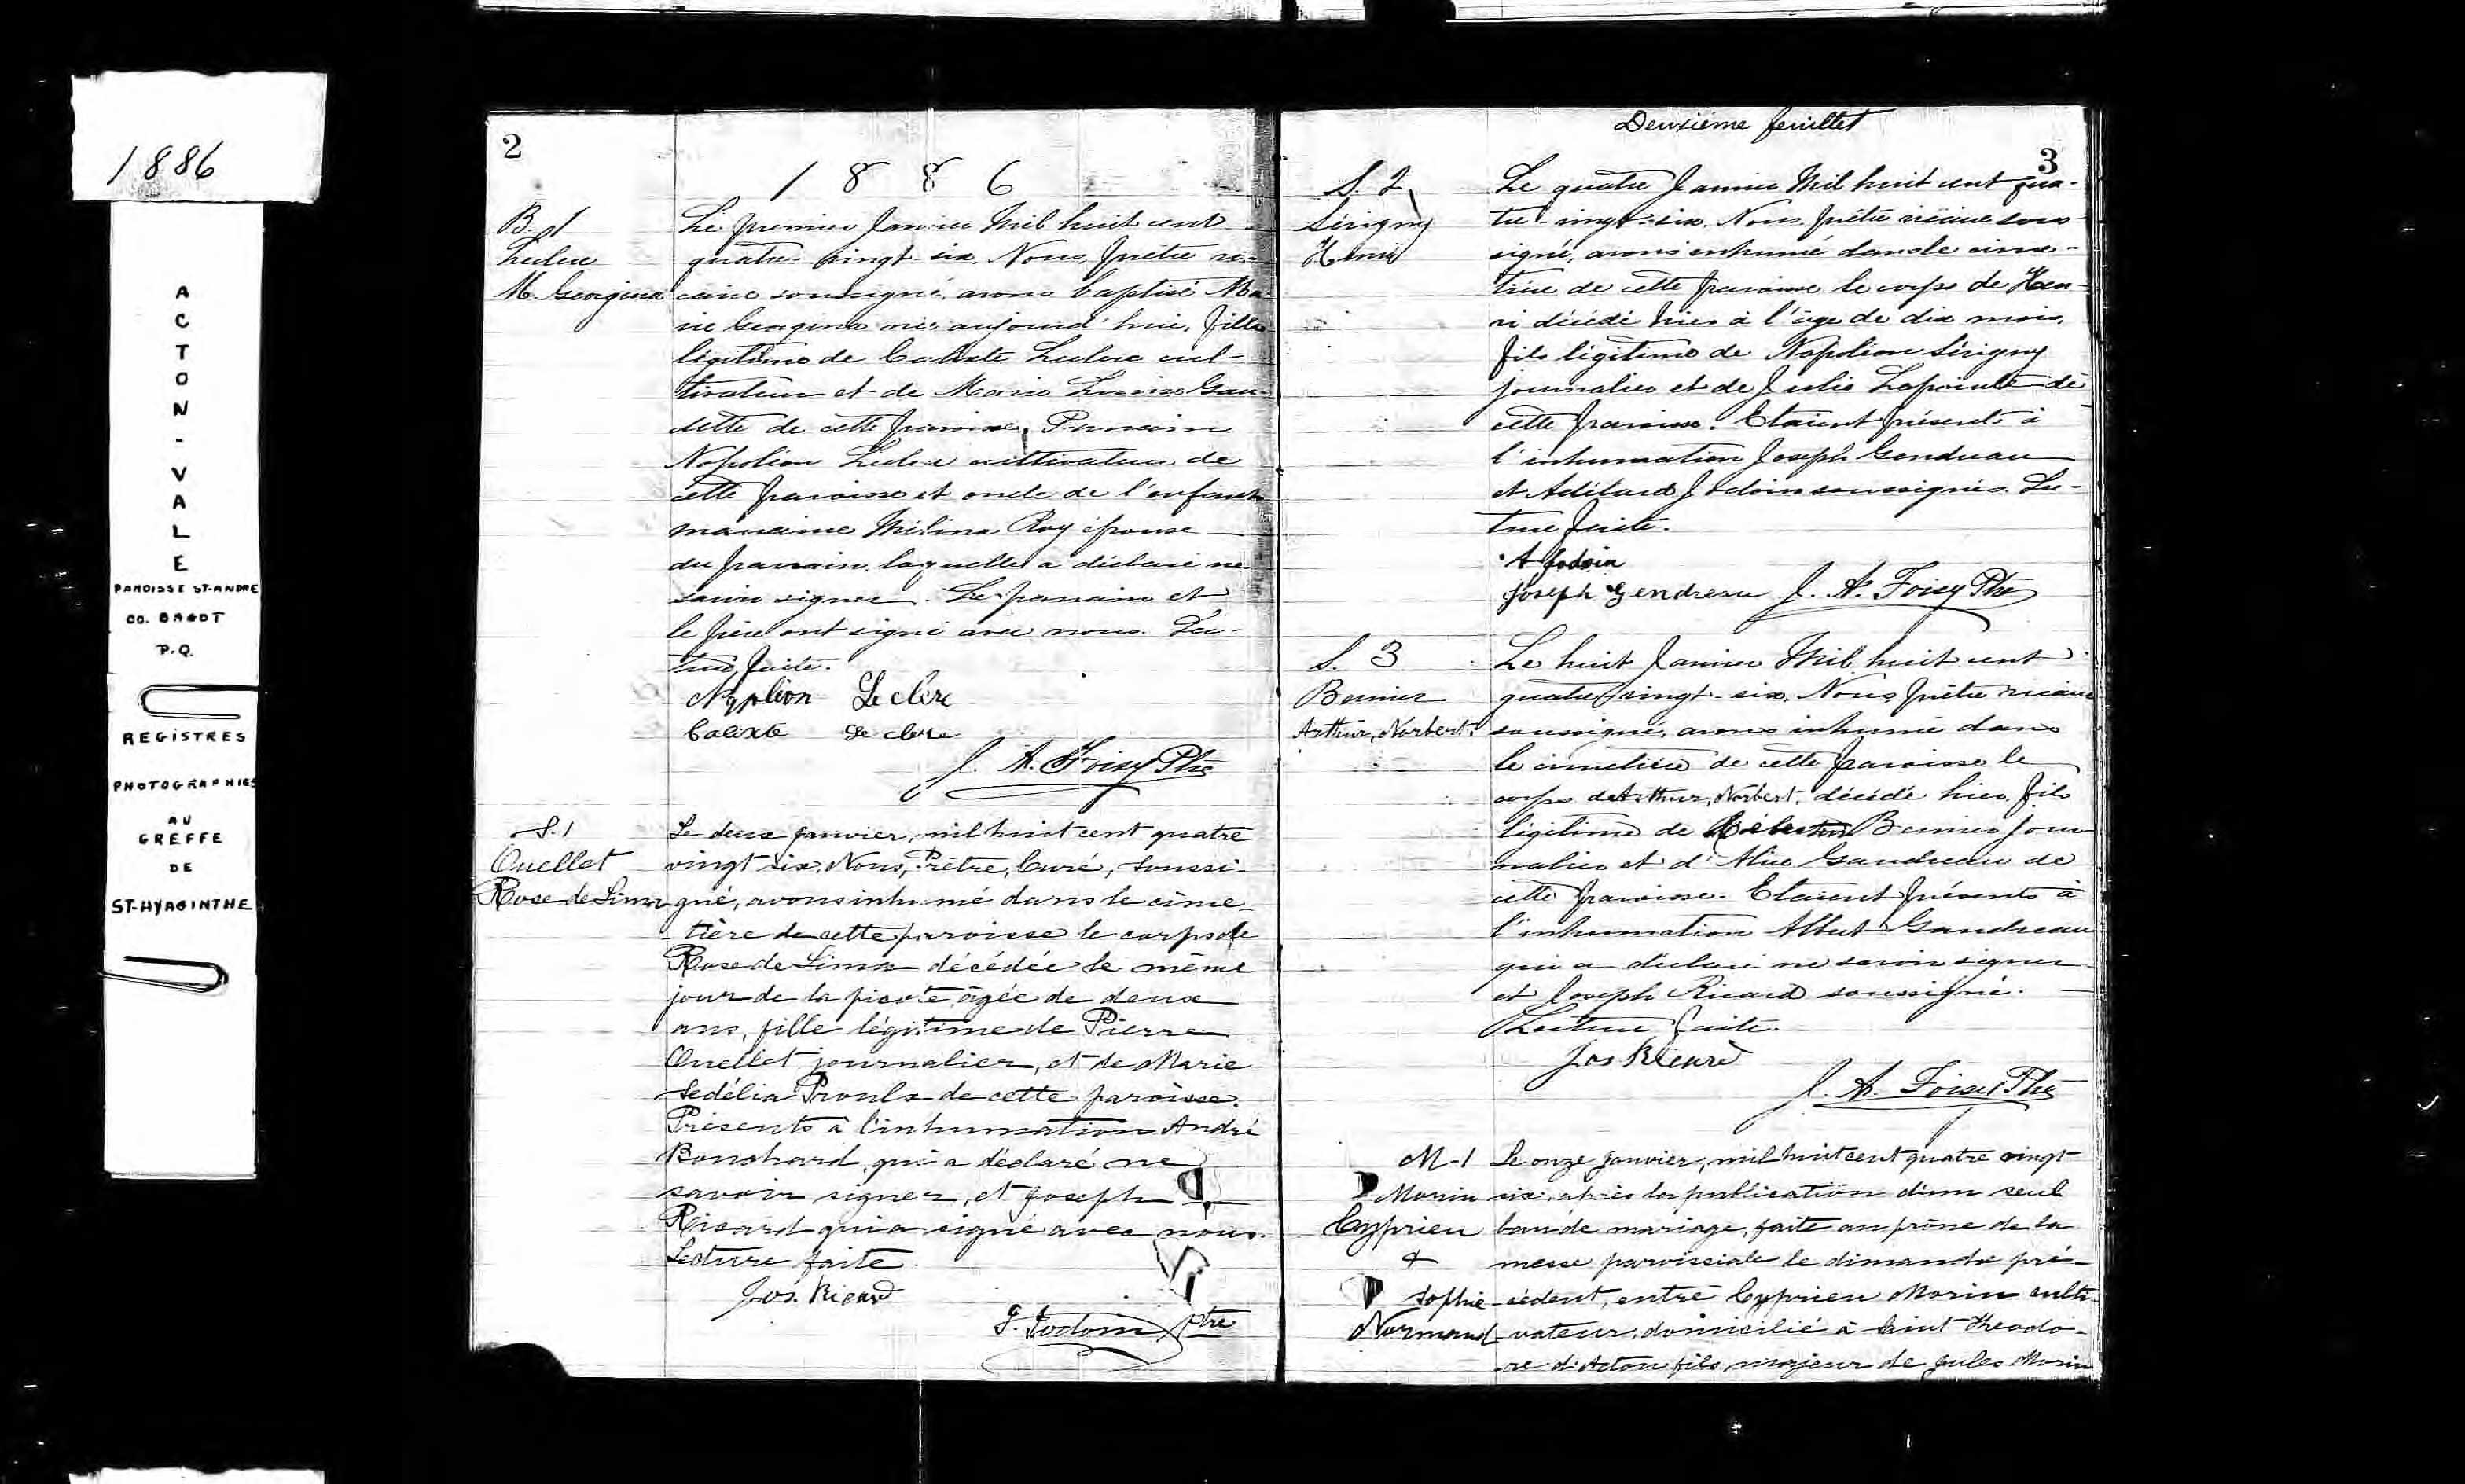 1886
ACTON-VALE
PAROISSE ST-ANDRE
CO. BAGOT
P.Q.
REGISTRES
PHOTOGRAPHIES
AU
GREFFE
DE
ST-HYACINTHE
2
1886
B. 1
Leclerc
M. Georgina
Le premier Janvier Mil huit cent
quatre-vingt-six. Nous, prêtre vi-
caire soussigné, avons baptisé Ma-
rie Georgina née aujourd'hui, fille
légitime de Calixte Leclerc cul-
tivateur et de Marie Gau-
dette de cette paroisse. Parrain
Napoléon Leclerc cultivateur de
cette paroisse et oncle de l'enfant
marraine Mélina Roy épouse
du parrain, laquelle a déclaré ne
savoir signer. Le parrain et
le père ont signé avec nous. Lec-
ture faite.
Napoléon Leclerc
Calixte Leclerc
J. A. Foisy Ptre
S. 1
Ouellet
Rose de Lima
Le deux janvier, mil huit cent quatre
vingt six, Nous, Prêtre, Curé, soussi-
gné, avons inhumé dans le cime-
tière de cette paroisse le corps de
Rose de Lima décédée le même
jour de la picote, âgée de deux
ans, fille légitime de Pierre
Ouellet journalier, et de Marie
Sedélia Proulx de cette paroisse.
Présents à l'inhumation André
Bouchard, qui a déclaré ne
savoir signer, et Joseph
Ricard qui a signé avec nous.
Lecture faite.
Jos. Ricard
Jodoin Ptre
Deuxième feuillet
3
S. 2
Sérigny
Henri
Le quatre Janvier Mil huit cent qua-
tre-vingt-six. Nous prêtre vicaire sous-
signé, avons inhumé dans le cime-
tière de cette paroisse le corps de Hen-
ri décédé hier à l'âge de dix mois,
fils légitime de Napoléon Sérigny
journalier et de Julie Lapointe de
cette paroisse. Etaient présents à
l'inhumation Joseph Gendreau
et Adélard Jodoin soussignés. Lec-
ture faite.
A Jodoin
Joseph Gendreau J. A. Foisy Ptre
S. 3
Bernier
Arthur, Norbert.
Le huit Janvier Mil huit cent
quatre-vingt-six. Nous, prêtre vicaire
soussigné, avons inhumé dans
le cimetière de cette paroisse le
corps de Arthur, Norbert, décédé hier, fils
légitime de Célestin Bernier jour-
nalier et d'Alice Gandreau de
cette paroisse. Etaient présents à
l'inhumation Albert Gandreau
qui a déclaré ne savoir signer
et Joseph Ricard soussigné.
Lecture faite.
Jos Ricard
J. A. Foisy Ptre
M-1
Morin
Cyprien
&
Sophie
Normand
Le onze janvier, mil huit cent quatre vingt
six, après la publication d'un seul
ban de mariage, faite au prône de la
messe paroissiale le dimanche pré-
cédent, entre Cyprien Morin culti-
vateur, domicilié à Saint Théodo-
re d'Acton fils majeur de Jules Morin